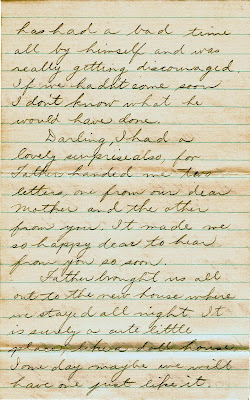 has had a bad time
all by himself and was
really getting discouraged.
If we hadnt come soon
I don't know what he
would have done.
Darling, I had a
lovely surprise also, for
Father handed me two
letters, one from our dear
Mother and the other
from you. It made me
so happy dear to hear
from you so soon.
Father brought us all
out to the new house where
we stayed all night. It
is surely a cute little
place, like a doll house.
Some day maybe we will
have one just like it.